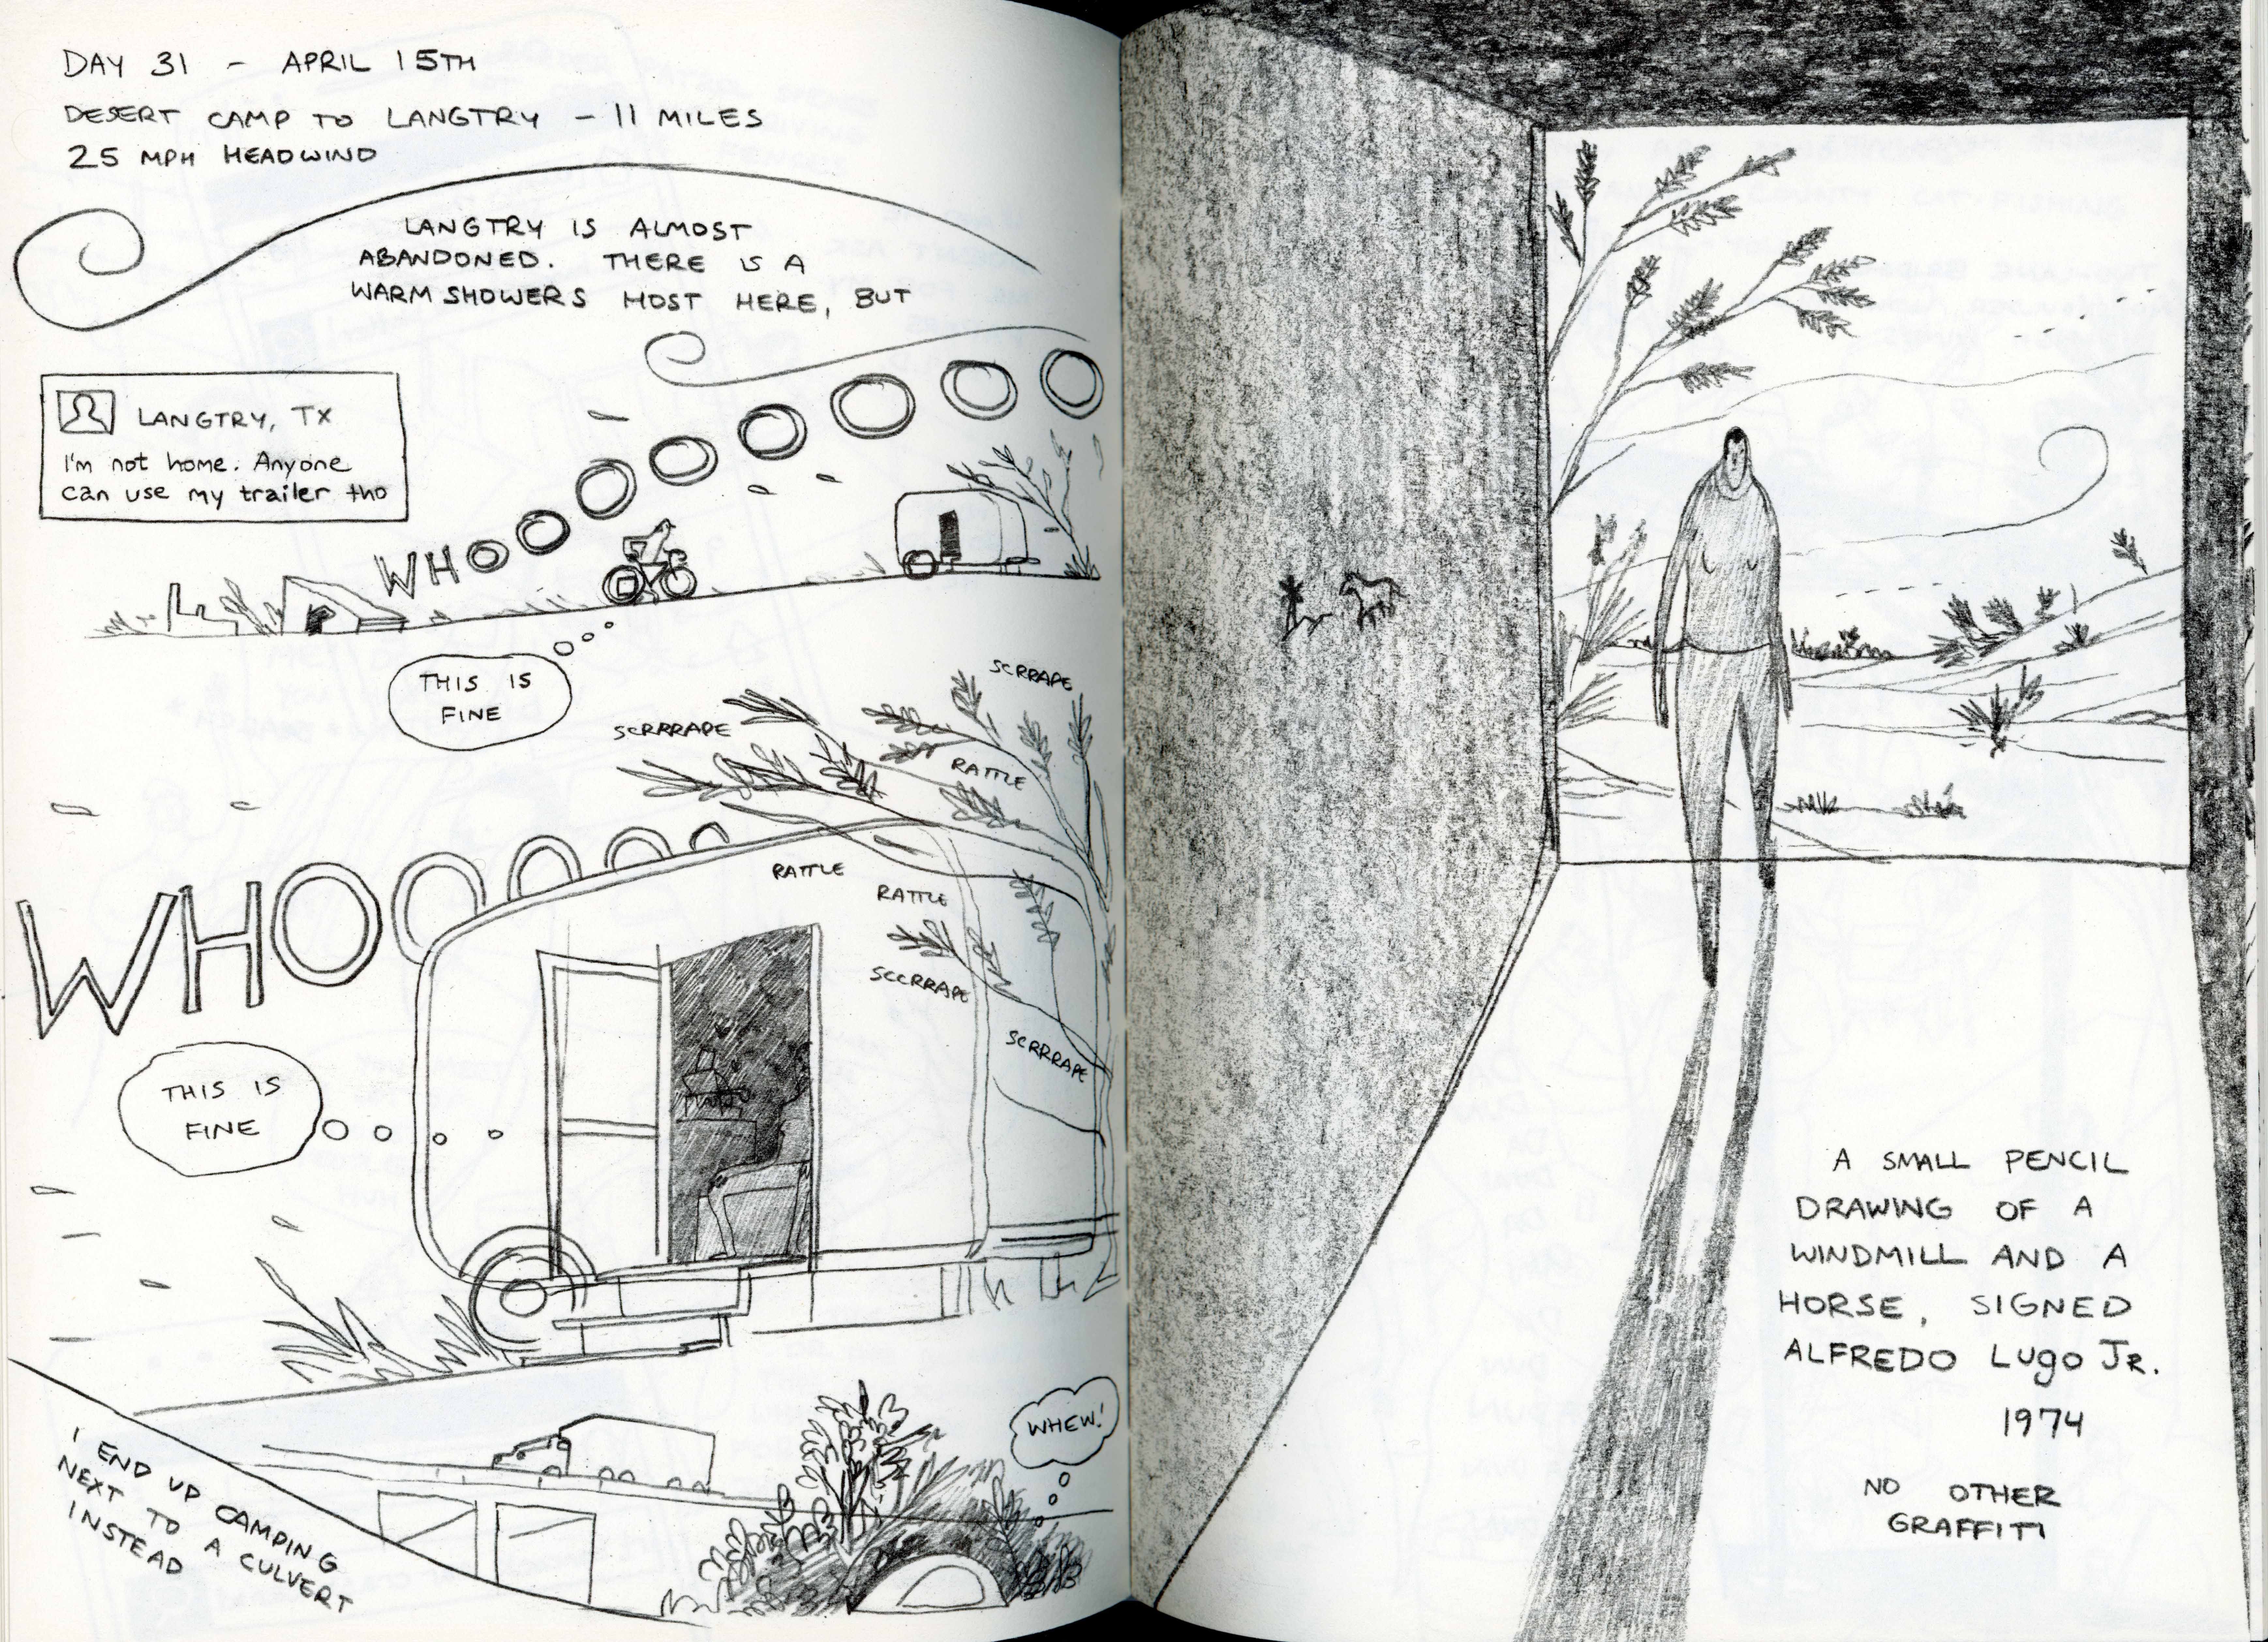 DAY 31 - APRIL 15TH
DESERT CAMP TO LANGTRY - 11 MILES
25 MPH HEADWIND
LANGTRY IS ALMOST
ABANDONED. THERE IS A
WARMSHOWERS HOST HERE, BUT
LANGTRY, TX
I'm not home. Anyone
can use my trailer tho
WHOOOOOOOO
THIS IS
FINE
SCRRAPE
SCRRRAPE
RATTLE
WHOOOOO
RATTLE
RATTLE
SCCRRAPE
SCRRRAPE
THIS IS
FINE
I END UP CAMPING
NEXT TO A CULVERT
INSTEAD
WHEW!
A SMALL PENCIL
DRAWING OF A
WINDMILL AND A
HORSE, SIGNED
ALFREDO Lugo JR.
1974
NO OTHER
GRAFFITI